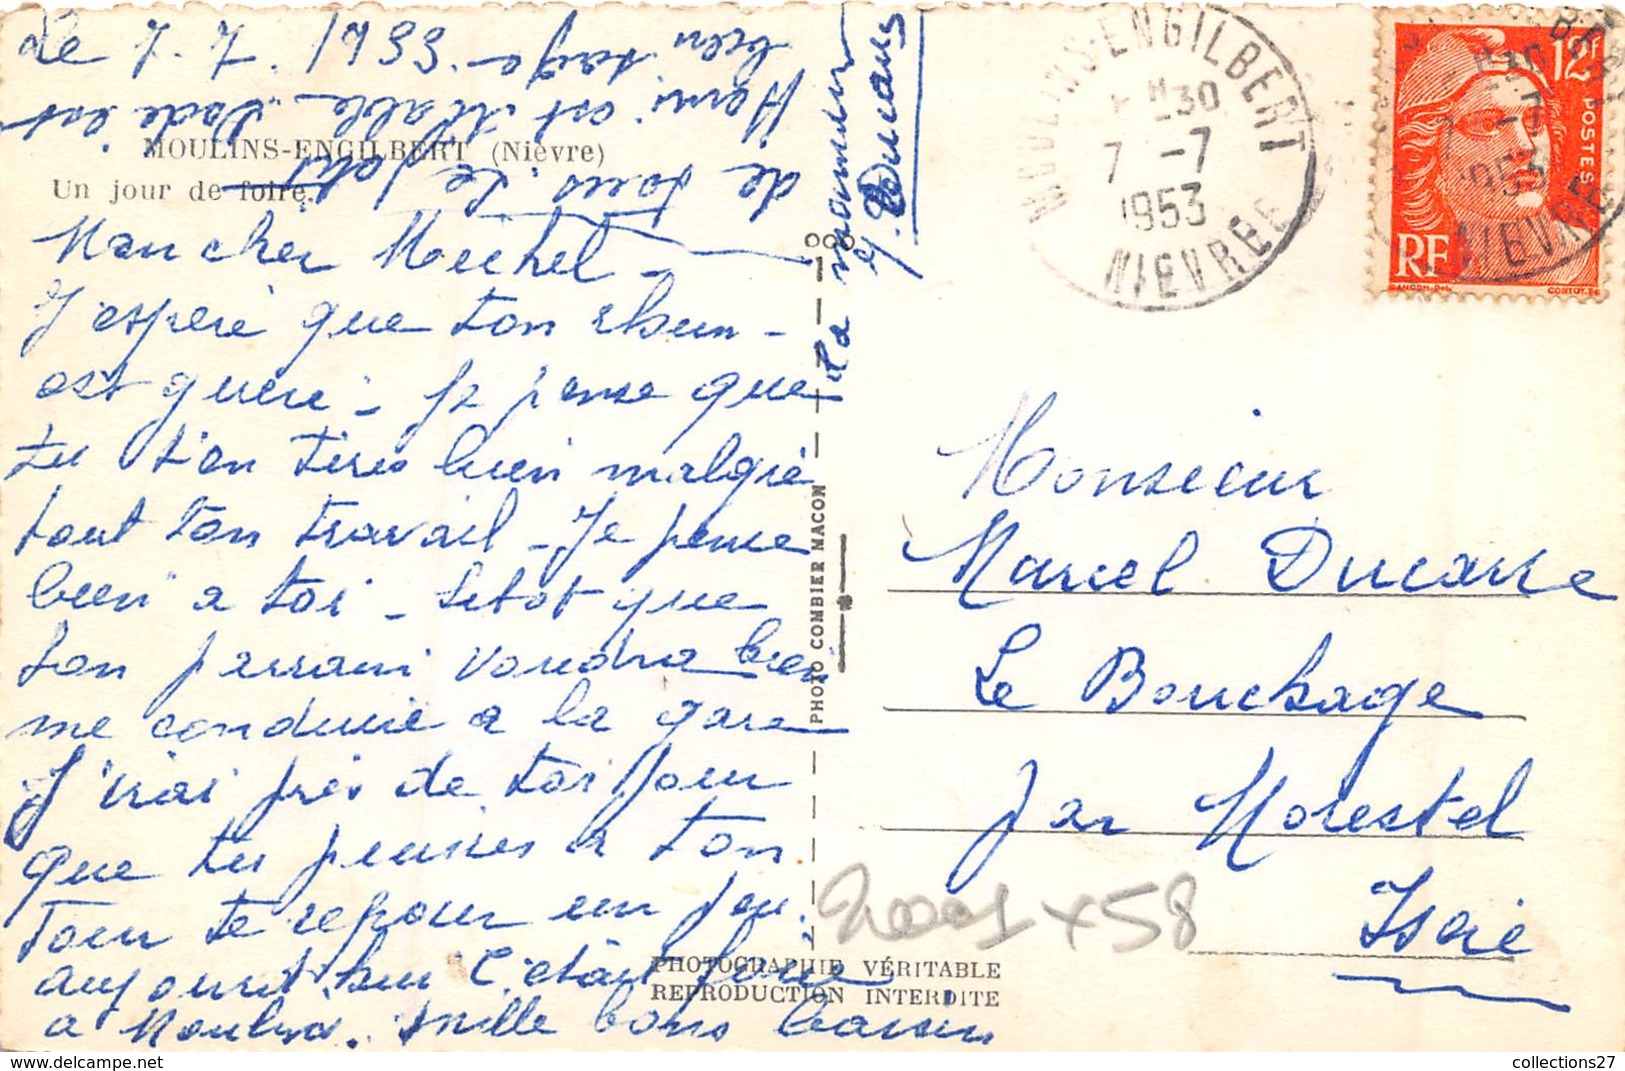 Le 7. 7. 1953.
MOULINS-ENGILBERT (Nièvre)
Un jour de foire.
Mon cher Michel -
J'espère que ton rhum -
est guéri - Je pense que
tu t'en tires bien malgré
tout ton travail - Je pense
bien a toi - Sitot que
ton parrain voudra bien
me conduire a la gare
J'irai près de toi pour
que tu puisses a ton
Tour te reposer un peu.
aujourd'hui c'était foire
a Moulins. mille bons baisers
de tous. Le petit
Henri est est
bien sage.
La maman
PHOTO COMBIER MACON
PHOTOGRAPHIE VÉRITABLE
REPRODUCTION INTERDITE
MOULINS-ENGILBERT
H30
7 -7
1953
NIEVRE
12F
POSTES
RF
GANDON.Del.
CORTOT.Sc
Monsieur
Marcel Ducarre
Le Bouchage
par Morestel
Isère
x58
collections27